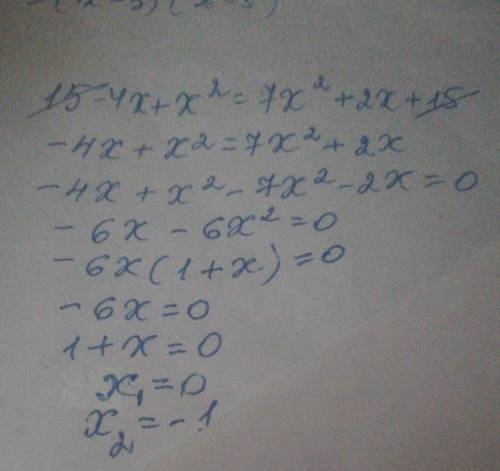 15-4x+x²=7x²+2x+15
-4x+x²=7x²+2x
-4x+x²-7x²-2x=0
-6x-6x²=0
-6x(1+x)=0
-6x=0
1+x=0
x₁=0
x₂=-1